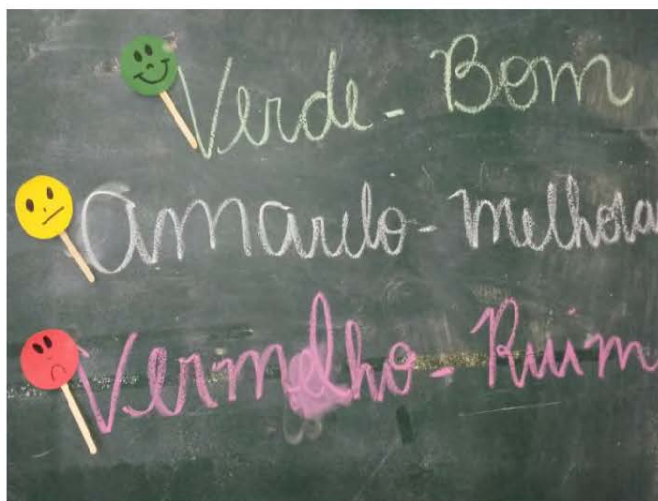 Verde - Bom
Amarelo - Melhora
Vermelho - Ruim